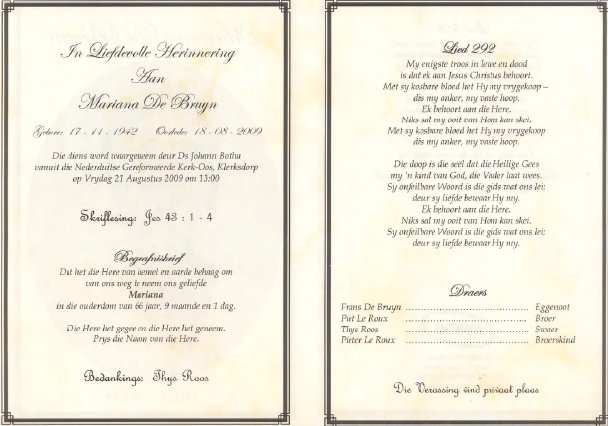 In Liefdevolle Herinnering
Aan
Mariana De Bruyn
Gebore: 17 - 11 - 1942 Oorlede: 18 - 08 - 2009
Die diens word waargeneem deur Ds Johann Botha
vanuit die Nederduitse Gereformeerde Kerk-Oos, Klerksdorp
op Vrydag 21 Augustus 2009 om 13:00
Skriflesing: Jes 43 : 1 - 4
Begrafnisbrief
Dit het die Here van hemel en aarde behaag om
van ons weg te neem ons geliefde
Mariana
in die ouderdom van 66 jaar, 9 maande en 1 dag.
Die Here het gegee en die Here het geneem.
Prys die Naam van die Here.
Bedankings: Thys Roos
Lied 292
My enigste troos in lewe en dood
is dat ek aan Jesus Christus behoort.
Met sy kosbare bloed het Hy my vrygekoop –
dis my anker, my vaste hoop.
Ek behoort aan die Here.
Niks sal my ooit van Hom kan skei.
Met sy kosbare bloed het Hy my vrygekoop
dis my anker, my vaste hoop.
Die doop is die seël dat die Heilige Gees
my 'n kind van God, die Vader laat wees.
Sy onfeilbare Woord is die gids wat ons lei;
deur sy liefde bewaar Hy my.
Ek behoort aan die Here.
Niks sal my ooit van Hom kan skei.
Sy onfeilbare Woord is die gids wat ons lei;
deur sy liefde bewaar Hy my.
Draers
Frans De Bruyn ........................................ Eggenoot
Piet Le Roux ........................................ Broer
Thys Roos ........................................ Swaer
Pieter Le Roux ........................................ Broerskind
Die Verassing vind privaat plaas